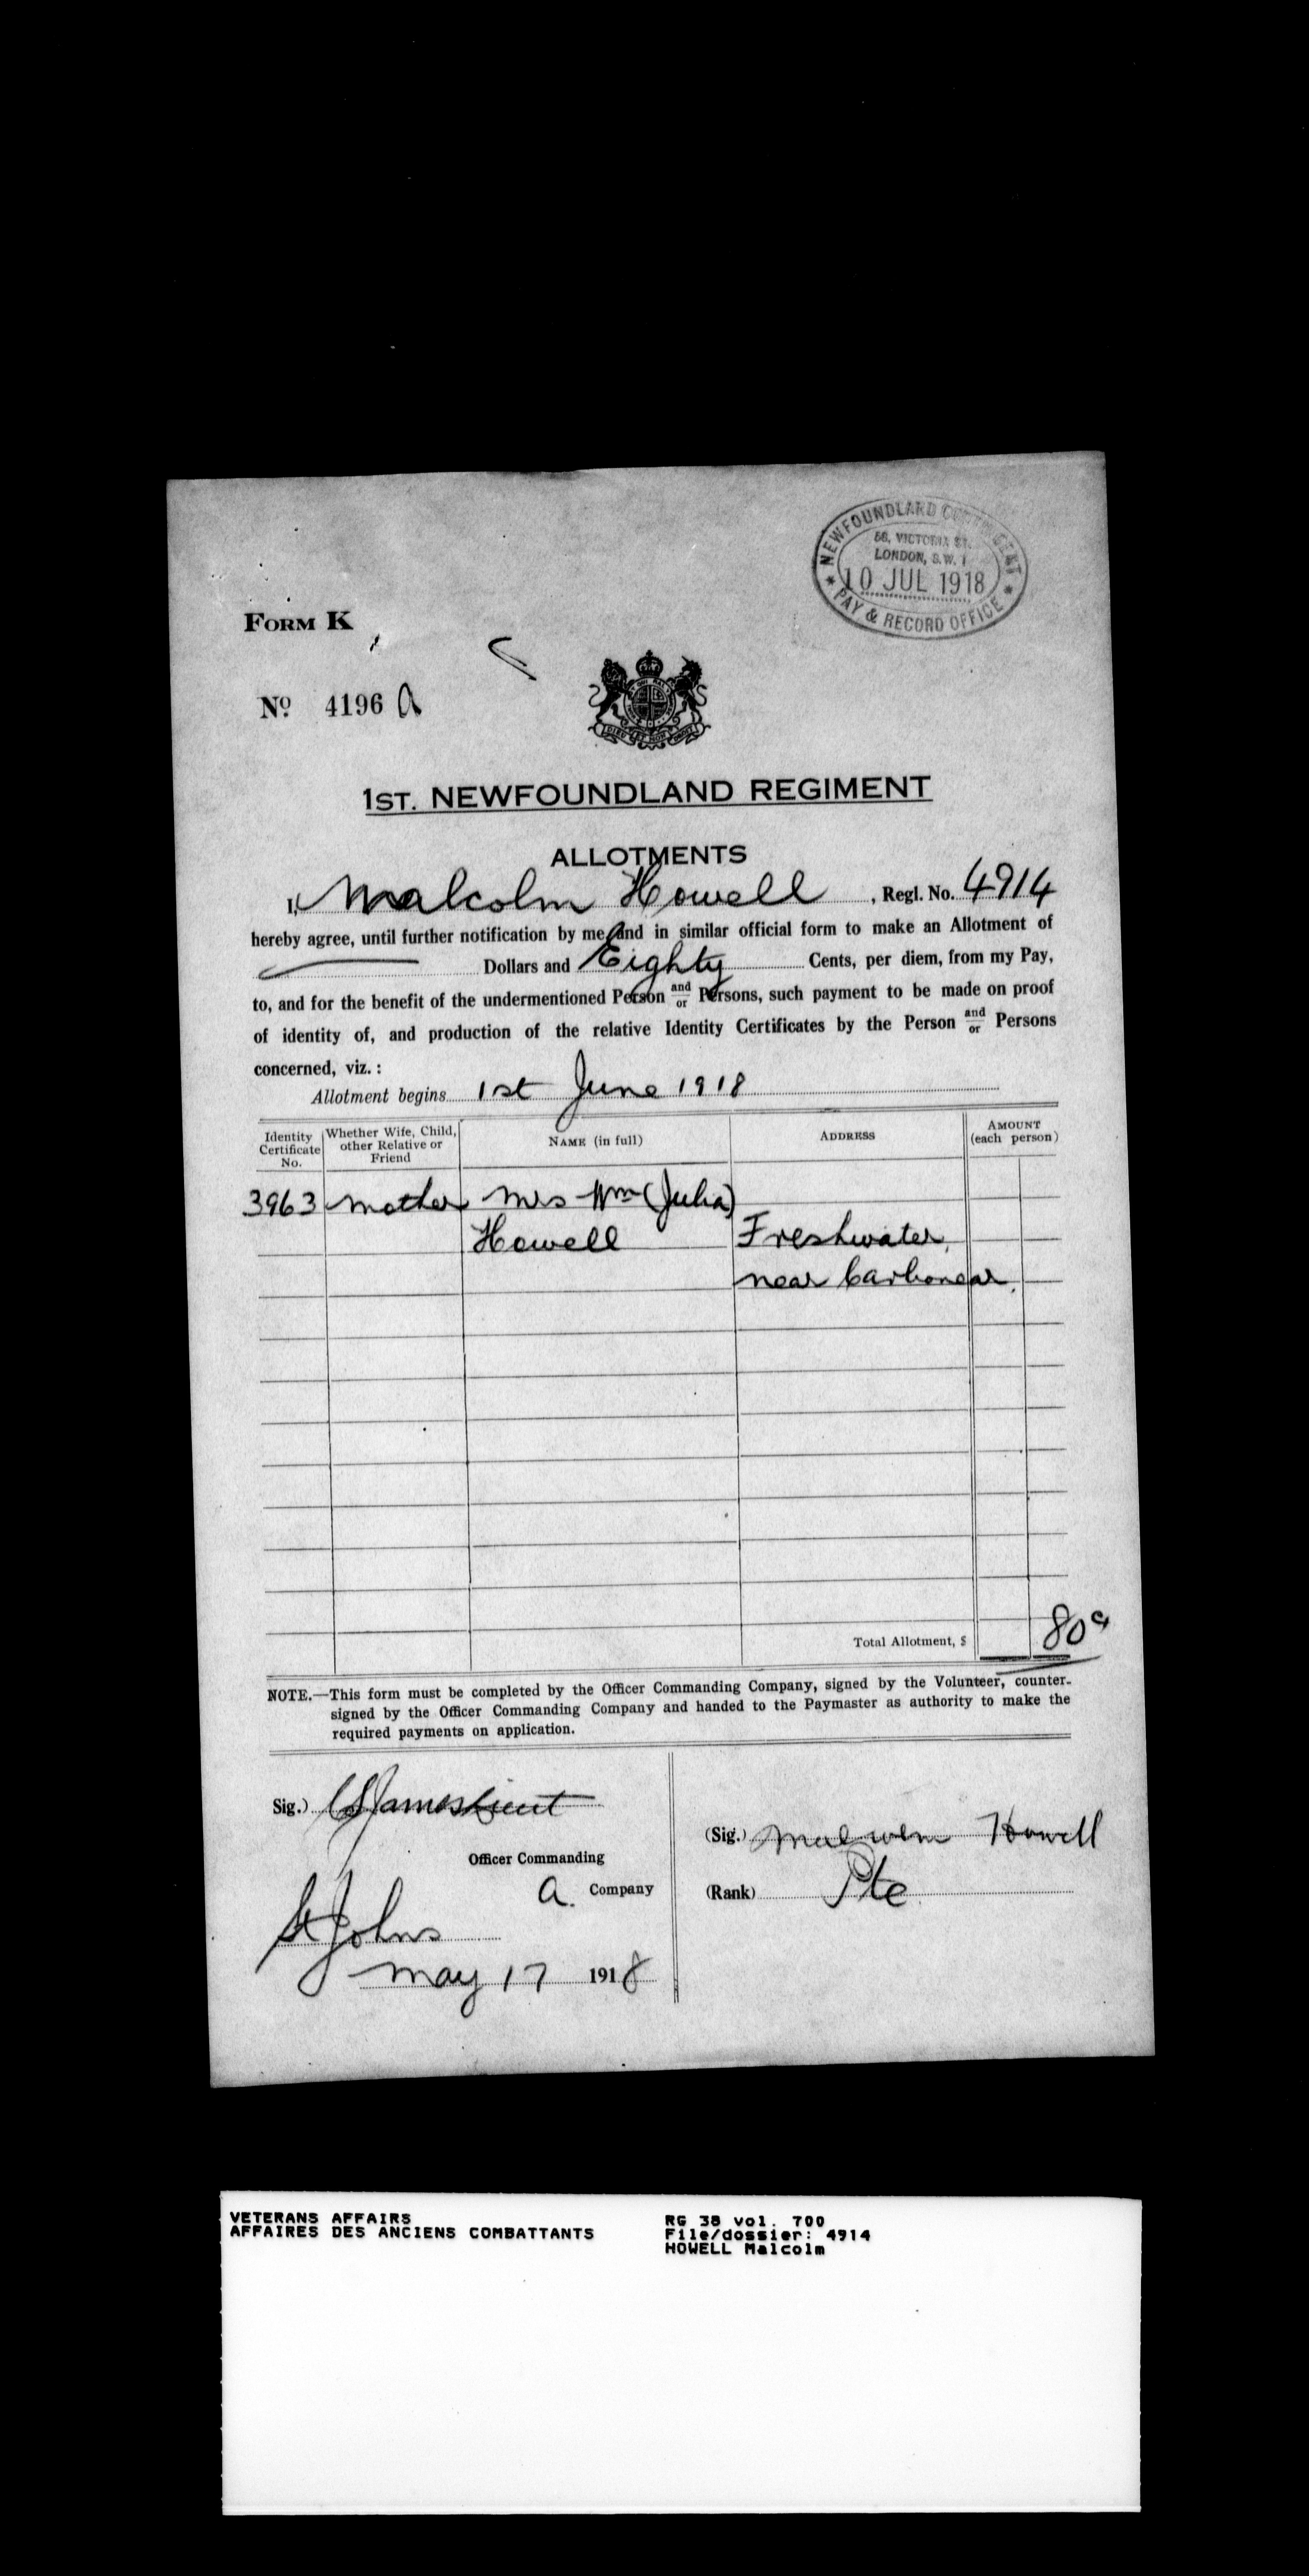 NEWFOUNDLAND CONTINGENT
58, VICTORIA ST.
LONDON, S.W. 1
10 JUL 1918
PAY & RECORD OFFICE
FORM K
Nº 4196 a
1ST. NEWFOUNDLAND REGIMENT
ALLOTMENTS
I, Malcolm Howell , Regl. No. 4914
hereby agree, until further notification by me and in similar official form to make an Allotment of
Dollars and Eighty Cents, per diem, from my Pay,
to, and for the benefit of the undermentioned Person and/or Persons, such payment to be made on proof
of identity of, and production of the relative Identity Certificates by the Person and/or Persons
concerned, viz. :
Allotment begins 1st June 1918
Identity Certificate No. Whether Wife, Child, other Relative or Friend NAME (in full) ADDRESS AMOUNT (each person)
3963 mother Mrs Wm (Julia)
Howell Freshwater,
near Carbonear.
Total Allotment, $ 80c
NOTE.—This form must be completed by the Officer Commanding Company, signed by the Volunteer, counter-
signed by the Officer Commanding Company and handed to the Paymaster as authority to make the
required payments on application.
Sig.) James Lieut
(Sig.) Malcolm Howell
Officer Commanding
a. Company
(Rank) Pte
St Johns
May 17 1918
VETERANS AFFAIRS
AFFAIRES DES ANCIENS COMBATTANTS
RG 38 vol. 700
File/dossier: 4914
HOWELL Malcolm